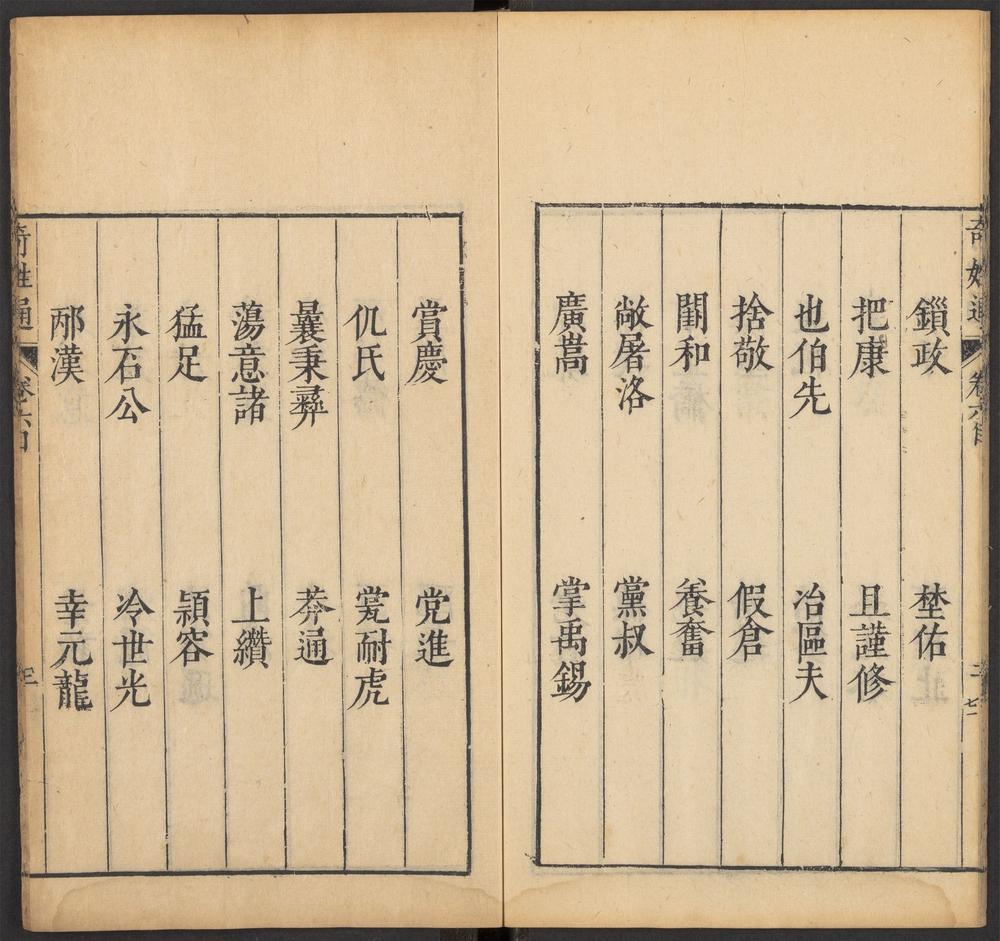 奇姓通 卷六目 二 七一
鎖政 埜佑
把康 且謹修
也伯先 冶區夫
捨敬 假倉
閨和 養奮
敞屠洛 黨叔
廣嵩 掌禹錫
賞慶 党進
仉氏 耐虎
曩秉彞 莽通
蕩意諸 上纘
猛足 潁容
永石公 冷世光
邴漢 幸元龍
奇姓通 卷六目 三